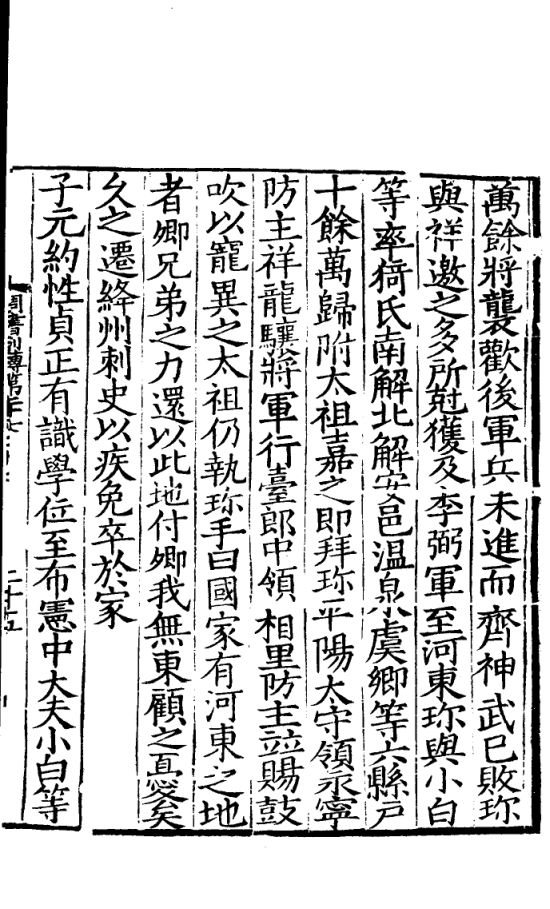 萬餘將襲歡後軍兵未進而齊神武已敗珍
與祥邀之多所尅獲及李弼軍至河東珍與小白
等率猗氏南解北解安邑溫泉虞鄉等六縣戶
十餘萬歸附太祖嘉之即拜珍平陽太守領永寧
防主祥龍驤將軍行臺郎中領相里防主並賜鼓
吹以寵異之太祖仍執珍手曰國家有河東之地
者卿兄弟之力還以此地付卿我無東顧之憂矣
久之遷絳州刺史以疾免卒於家
子元約性貞正有識學位至布憲中大夫小白等
周書列傳第二十七
二十五